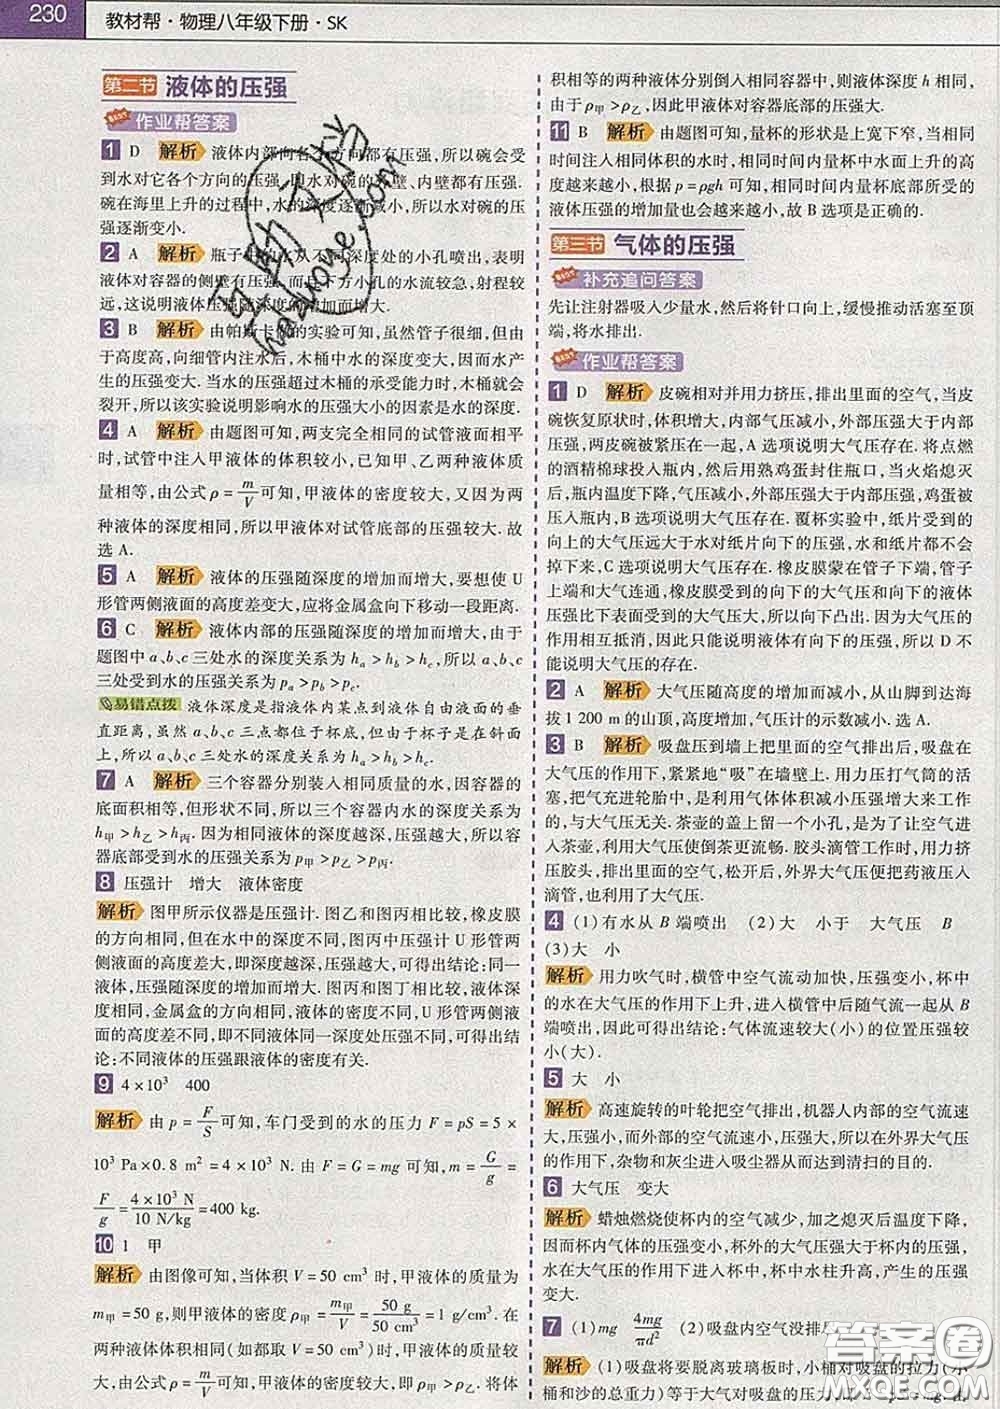 230
教材帮·物理八年级下册·SK
第二节 液体的压强
作业帮答案
1 D 解析 液体内部向各个方向都有压强,所以碗会受
到水对它各个方向的压强,即水对碗的外壁、内壁都有压强.
碗在海里上升的过程中,水的深度逐渐减小,所以水对碗的压
强逐渐变小.
2 A 解析 瓶子中的水从不同深度处的小孔喷出,表明
液体对容器的侧壁有压强,而且下方小孔的水流较急,射程较
远,这说明液体压强随深度的增加而增大.
3 B 解析 由帕斯卡做的实验可知,虽然管子很细,但由
于高度高,向细管内注水后,木桶中水的深度变大,因而水产
生的压强变大.当水的压强超过木桶的承受能力时,木桶就会
裂开,所以该实验说明影响水的压强大小的因素是水的深度.
4 A 解析 由题图可知,两支完全相同的试管液面相平
时,试管中注入甲液体的体积较小,已知甲、乙两种液体质
量相等,由公式ρ=m/V可知,甲液体的密度较大,又因为两
种液体的深度相同,所以甲液体对试管底部的压强较大.故
选A.
5 A 解析 液体的压强随深度的增加而增大,要想使U
形管两侧液面的高度差变大,应将金属盒向下移动一段距离.
6 C 解析 液体内部的压强随深度的增加而增大,由于
题图中a、b、c三处水的深度关系为ha>hb>hc,所以a、b、c
三处受到水的压强关系为pa>pb>pc.
易错点拨 液体深度是指液体内某点到液体自由液面的垂
直距离,虽然a、b、c三点都位于杯底,但由于杯子是在斜面
上,所以a、b、c三处水的深度关系为ha>hb>hc.
7 A 解析 三个容器分别装入相同质量的水,因容器的
底面积相等,但形状不同,所以三个容器内水的深度关系为
h甲>h乙>h丙.因为相同液体的深度越深,压强越大,所以容
器底部受到水的压强关系为p甲>p乙>p丙.
8 压强计 增大 液体密度
解析 图甲所示仪器是压强计.图乙和图丙相比较,橡皮膜
的方向相同,但在水中的深度不同,图丙中压强计U形管两
侧液面的高度差大,即深度越深,压强越大,可得出结论:同一
液体,压强随深度的增加而增大.图丙和图丁相比较,液体深
度相同,金属盒的方向相同,液体的密度不同,U形管两侧液
面的高度差不同,即不同液体同一深度处压强不同,可得出结
论:不同液体的压强跟液体的密度有关.
9 4×10³ 400
解析 由p=F/S可知,车门受到的水的压力F=pS=5×
10³ Pa×0.8 m²=4×10³ N.由F=G=mg可知,m=G/g=
F/g=4×10³ N/10 N/kg=400 kg.
10 1 甲
解析 由图像可知,当体积V=50 cm³时,甲液体的质量为
m甲=50 g,则甲液体的密度ρ甲=m甲/V=50 g/50 cm³=1 g/cm³.在
两种液体体积相同(如都取V=50 cm³)时,甲液体的质量较
大,由公式ρ=m/V可知,甲液体的密度较大,即ρ甲>ρ乙.将体
积相等的两种液体分别倒入相同容器中,则液体深度h相同,
由于ρ甲>ρ乙,因此甲液体对容器底部的压强大.
11 B 解析 由题图可知,量杯的形状是上宽下窄,当相同
时间注入相同体积的水时,相同时间内量杯中水面上升的高
度越来越小,根据p=ρgh可知,相同时间内量杯底部所受的
液体压强的增加量也会越来越小,故B选项是正确的.
第三节 气体的压强
补充追问答案
先让注射器吸入少量水,然后将针口向上,缓慢推动活塞至顶
端,将水排出.
作业帮答案
1 D 解析 皮碗相对并用力挤压,排出里面的空气,当皮
碗恢复原状时,体积增大,内部气压减小,外部压强大于内部
压强,两皮碗被紧压在一起,A选项说明大气压存在.将点燃
的酒精棉球投入瓶内,然后用熟鸡蛋封住瓶口,当火焰熄灭
后,瓶内温度下降,气压减小,外部压强大于内部压强,鸡蛋被
压入瓶内,B选项说明大气压存在.覆杯实验中,纸片受到的
向上的大气压远大于水对纸片向下的压强,水和纸片都不会
掉下来,C选项说明大气压存在.橡皮膜蒙在管子下端,管子
上端和大气连通,橡皮膜受到的向下的大气压和向下的液体
压强比下表面受到的大气压大,所以向下凸出.因为大气压的
作用相互抵消,因此只能说明液体有向下的压强,所以D不
能说明大气压的存在.
2 A 解析 大气压随高度的增加而减小,从山脚到达海
拔1 200 m的山顶,高度增加,气压计的示数减小.选A.
3 B 解析 吸盘压到墙上把里面的空气排出后,吸盘在
大气压的作用下,紧紧地“吸”在墙壁上.用力压打气筒的活
塞,把气充进轮胎中,是利用气体体积减小压强增大来工作
的,与大气压无关.茶壶的盖上留一个小孔,是为了让空气进
入茶壶,利用大气压使倒茶更流畅.胶头滴管工作时,用力挤
压胶头,排出里面的空气,松开后,外界大气压便把药液压入
滴管,也利用了大气压.
4 (1)有水从B端喷出 (2)大 小于 大气压 B
(3)大 小
解析 用力吹气时,横管中空气流动加快,压强变小,杯中
的水在大气压的作用下上升,进入横管中后随气流一起从B
端喷出,因此可得出结论:气体流速较大(小)的位置压强较
小(大).
5 大 小
解析 高速旋转的叶轮把空气排出,机器人内部的空气流速
大,压强小,而外部的空气流速小,压强大,所以在外界大气压
的作用下,杂物和灰尘进入吸尘器从而达到清扫的目的.
6 大气压 变大
解析 蜡烛燃烧使杯内的空气减少,加之熄灭后温度下降,
因而杯内气体的压强变小,杯外的大气压强大于杯内的压强,
水在大气压的作用下进入杯中,杯中水柱升高,产生的压强
变大.
7 (1)mg 4mg/πd² (2)吸盘内空气没排
解析 (1)吸盘将要脱离玻璃板时,小桶对吸盘的拉力(小
桶和沙的总重力)等于大气对吸盘的压力
答案圈
MXQE.COM